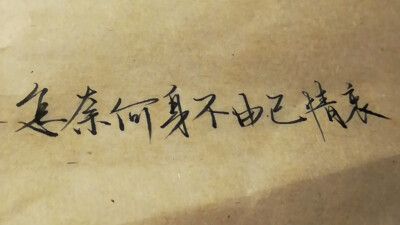 怎奈何身不由己情哀